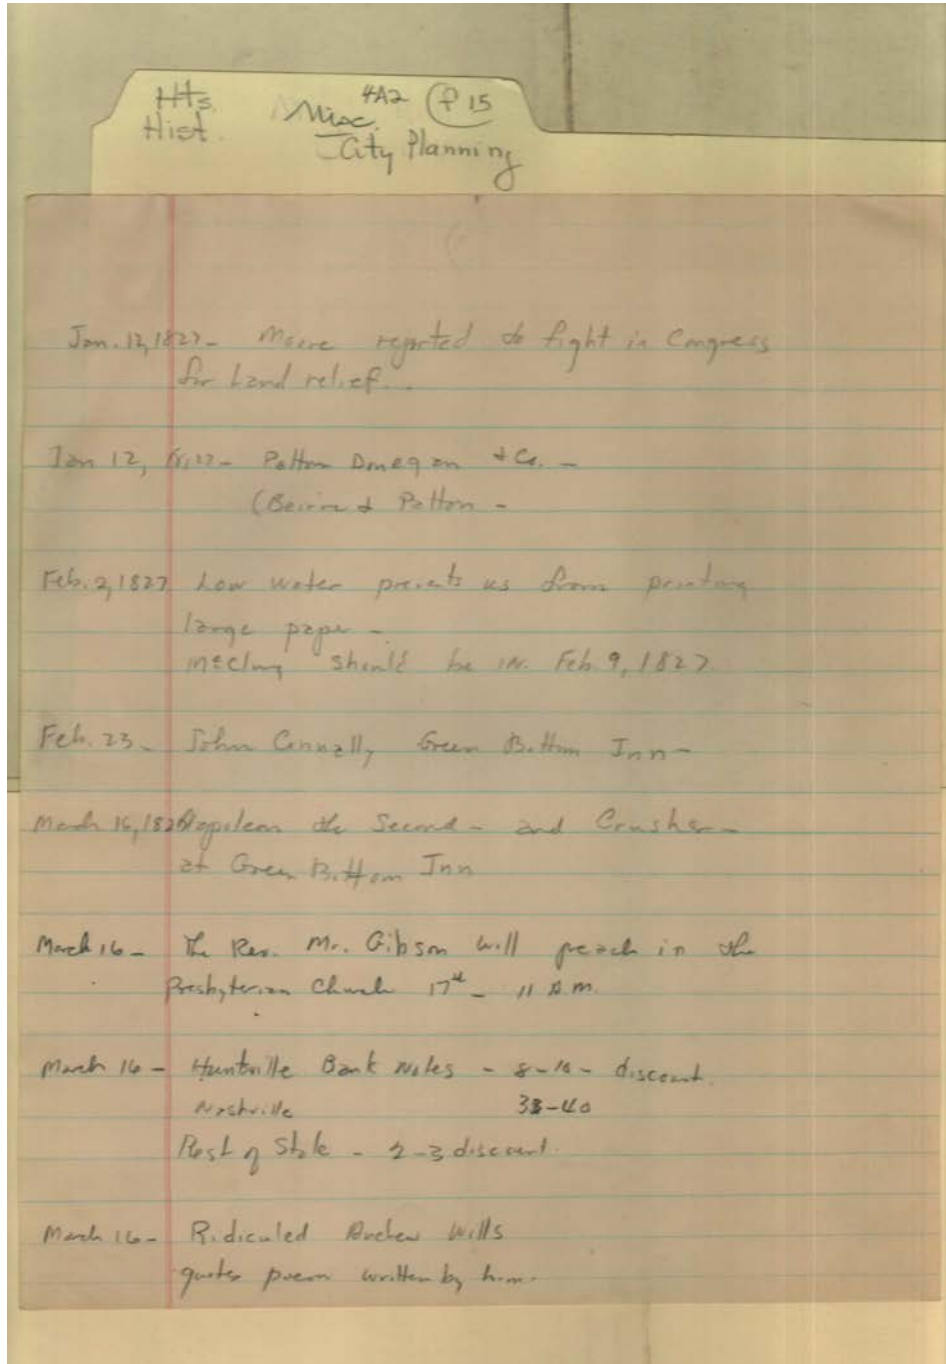 Hts. 4A2 (f 15
Hist. Misc.
City Planning
Jan. 12, 1827- Moore reported to fight in Congress
for Land relief...
Jan 12, 1827- Patton Donegan & Co. -
(Beirne & Patton -
Feb. 2, 1827 Low water prevents us from printing
large paper -
McClung should be in. Feb. 9, 1827
Feb. 23- John Connally Green Bottom Inn-
March 16, 182 Napoleon the Second - and Crusher-
at Green Bottom Inn
March 16- The Rev. Mr. Gibson will preach in the
Presbyterian Church 17th - 11 A.M.
March 16- Huntville Bank Notes - 8-10- discount.
Nashville 38-40
Rest of State - 2-3 discount.
March 16- Ridiculed Wills
quotes poem written by him.